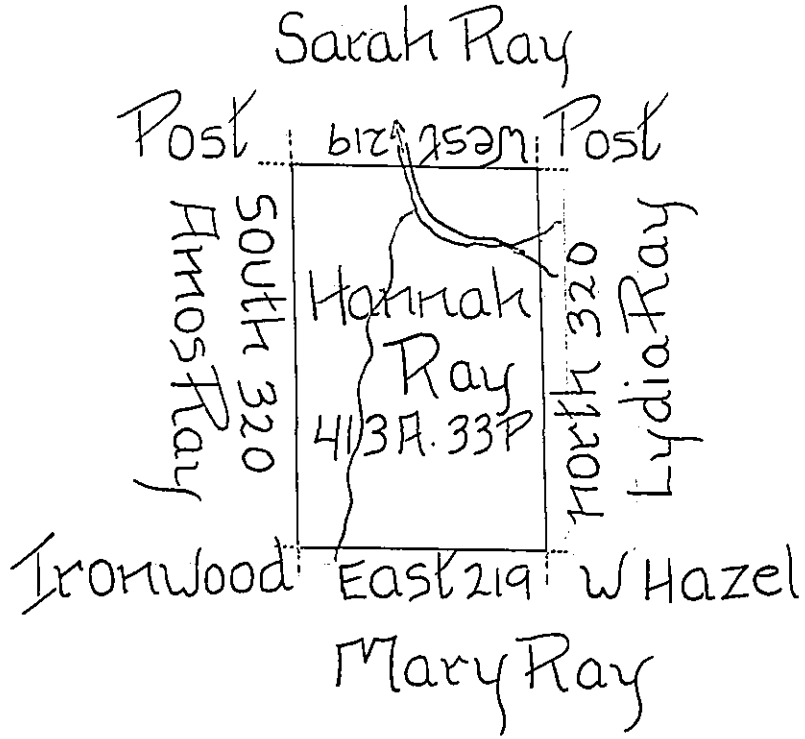 Sarah Ray
Post
West 219
Post
Amos Ray
South 320
Hannah
Ray
413A. 33P
North 320
Lydia Ray
Ironwood
East 219
W Hazel
Mary Ray